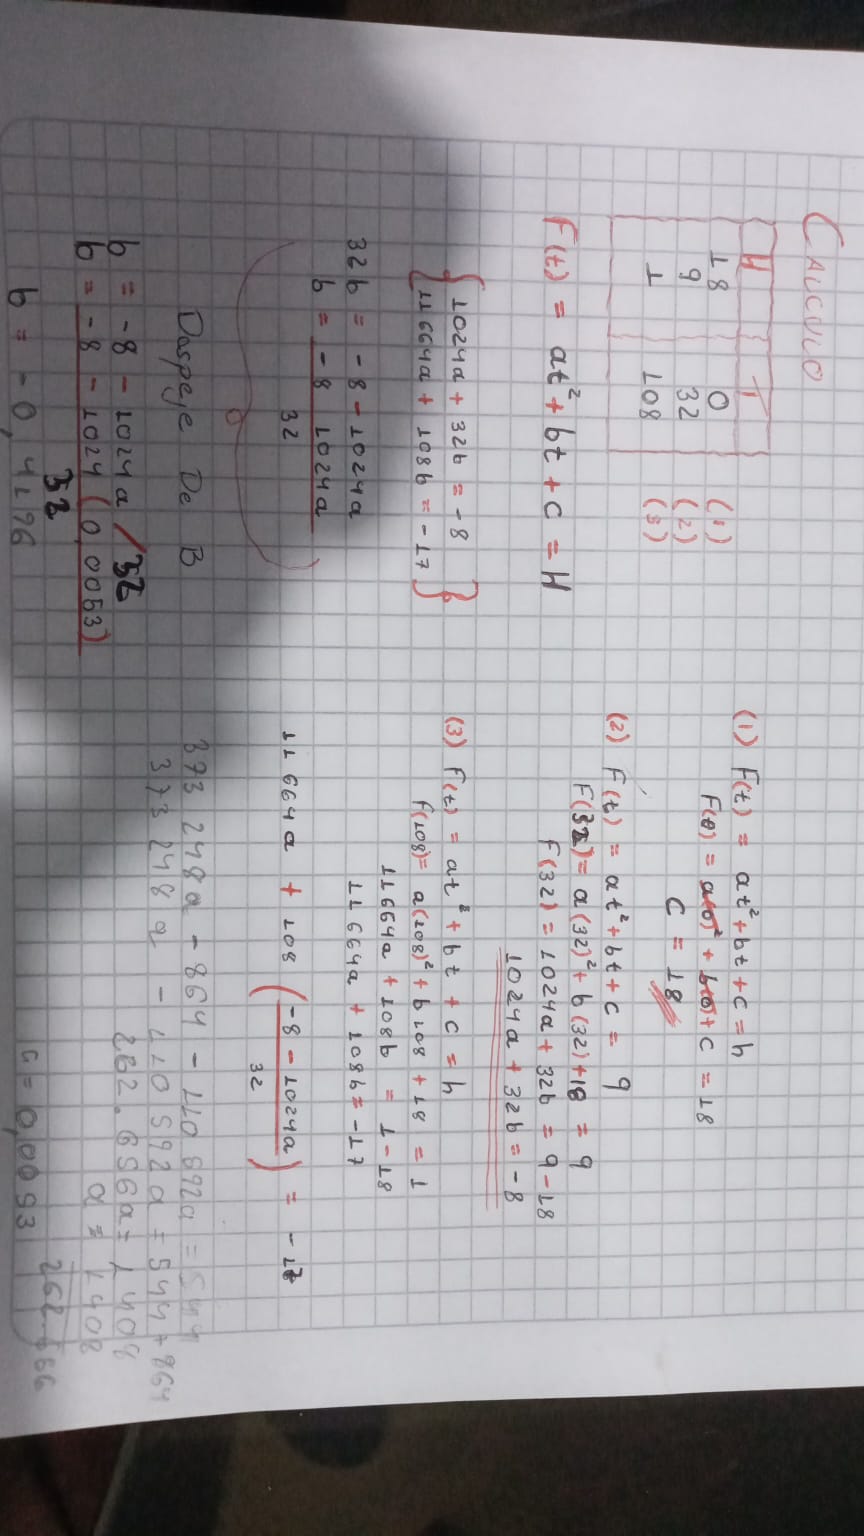 CALCULO
H T
18 0 (1)
9 32 (2)
1 108 (3)
F(t) = at²+bt+c = H
{1024a + 32b = -8
11664a + 108b = -17}
32b = -8-1024a
b = -8 1024a
32
Daspeje De B
b = -8 - 1024a /32
b = -8 - 1024(0,0053)
32
b = -0,4196
(1) F(t) = at²+bt+c=h
F(0) = a(0)² + b(0)+ c = 18
c = 18
(2) F(t) = at²+bt+c = 9
F(32)= a(32)²+ b(32)+18 = 9
F(32) = 1024a + 32b = 9-18
1024a + 32b = -8
(3) F(t) = at²+bt + c = h
f(108)= a(108)²+b 108 + 18 = 1
11664a + 108b = 1-18
11664a + 108b= -17
11664a + 108 (-8-1024a) = -17
32
373 248a - 864 - 110 592a = 544
373 248a - 110 592a = 544+864
262.656a= 1408
a = 1408
262.656
a = 0,0053